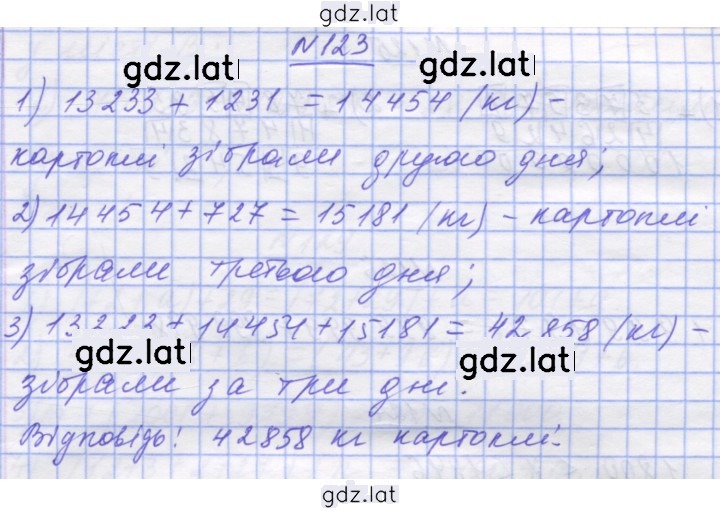 gdz.lat
N123
gdz.lat
gdz.lat
1) 13233 + 1231 = 14454 (кг) -
картоплі зібрали другого дня;
2) 14454 + 727 = 15181 (кг) - картоплі
зібрали третього дня;
3) + 14454 + 15181 = 42858 (кг) -
gdz.lat
gdz.lat
зібрали за три дні.
Відповідь! 42858 кг картоплі.
gdz.lat